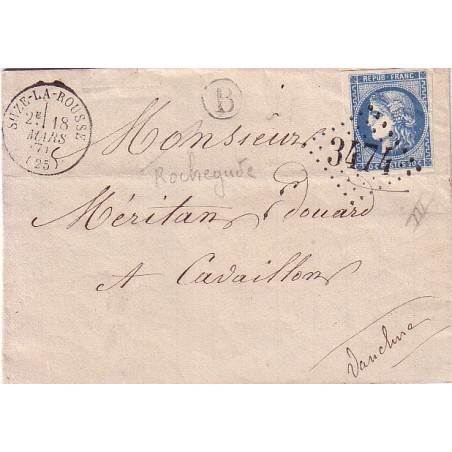 SUZE-LA-ROUSSE
2E 18
MARS
71
(25)
B
REPUB FRANC
3474
Monsieur
Rochegude
Méritan Edouard
A Cavaillon
Vaucluse